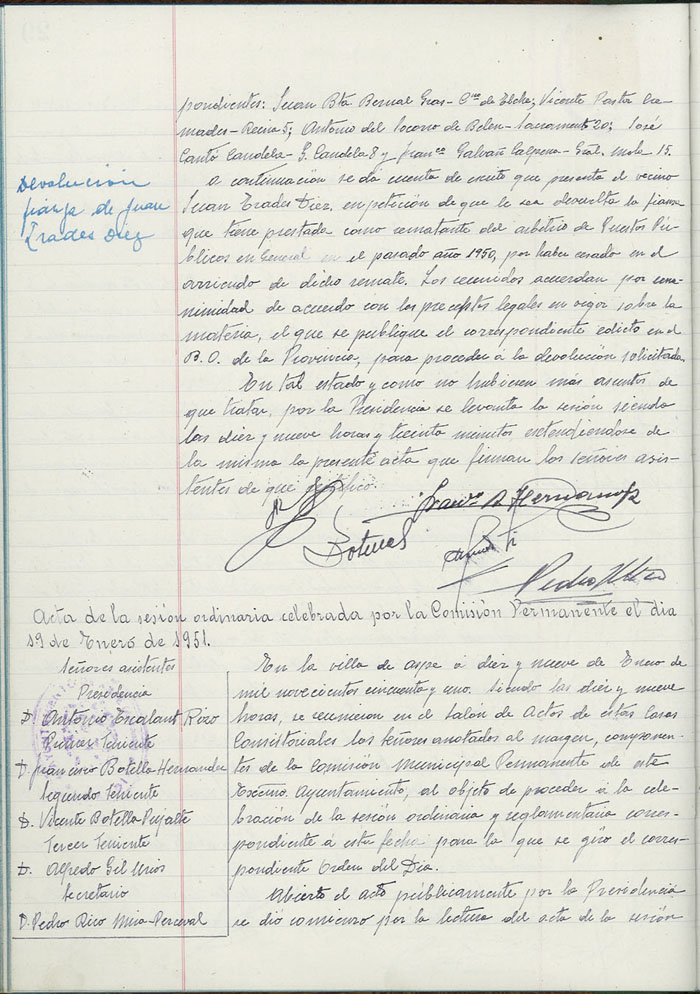 pondientes: Juan Bta Bernal Gras- Cno de Elche; Vicente Pastor Cre-
mades- Reina 5; Antonio del Socorro de Belen- Sacramento 20; José
Cantó Candela- S. Candela 8 y Franco Galvañ Calpena- Gral. Mola 15.
Devolución
fianza de Juan
Erades Diez
A continuación se dá cuenta de escrito que presenta el vecino
Juan Erades Diez, en petición de que le sea devuelta la fianza
que tiene prestada como rematante del arbitrio de Puestos Pú-
blicos en General en el pasado año 1950, por haber cesado en el
arriendo de dicho remate. Los reunidos acuerdan por una-
nimidad de acuerdo con los preceptos legales en vigor sobre la
materia, el que se publique el correspondiente edicto en el
B. O. de la Provincia, para proceder á la devolución solicitada.
En tal estado y como no hubiesen más asuntos de
que tratar, por la Presidencia se levanta la sesión siendo
las diez y nueve horas y treinta minutos extendiendose de
la misma la presente acta que firman los señores asis-
tentes de que certifico.
Franco B Hernandez
Botella
Pedro Rico
Acta de la sesión ordinaria celebrada por la Comisión Permanente el dia
19 de Enero de 1951.
Señores asistentes
Presidencia
D. Antonio Escalant Rizo
Primer Teniente
D. Francisco Botella Hernandez
Segundo Teniente
D. Vicente Botella Pujalte
Tercer Teniente
D. Alfredo Gil Urios
Secretario
D. Pedro Rico Mira-Perceval
En la villa de Aspe á diez y nueve de Enero de
mil novecientos cincuenta y uno. Siendo las diez y nueve
horas, se reunieron en el Salón de Actos de estas Casas
Consistoriales los señores anotados al margen, componen-
tes de la Comisión Municipal Permanente de este
Excmo. Ayuntamiento, al objeto de proceder á la cele-
bración de la sesión ordinaria y reglamentaria corres-
pondiente á esta fecha para la que se giro el corres-
pondiente Orden del Dia.
Abierto el acto públicamente por la Presidencia
se dio comienzo por la lectura del acta de la sesión